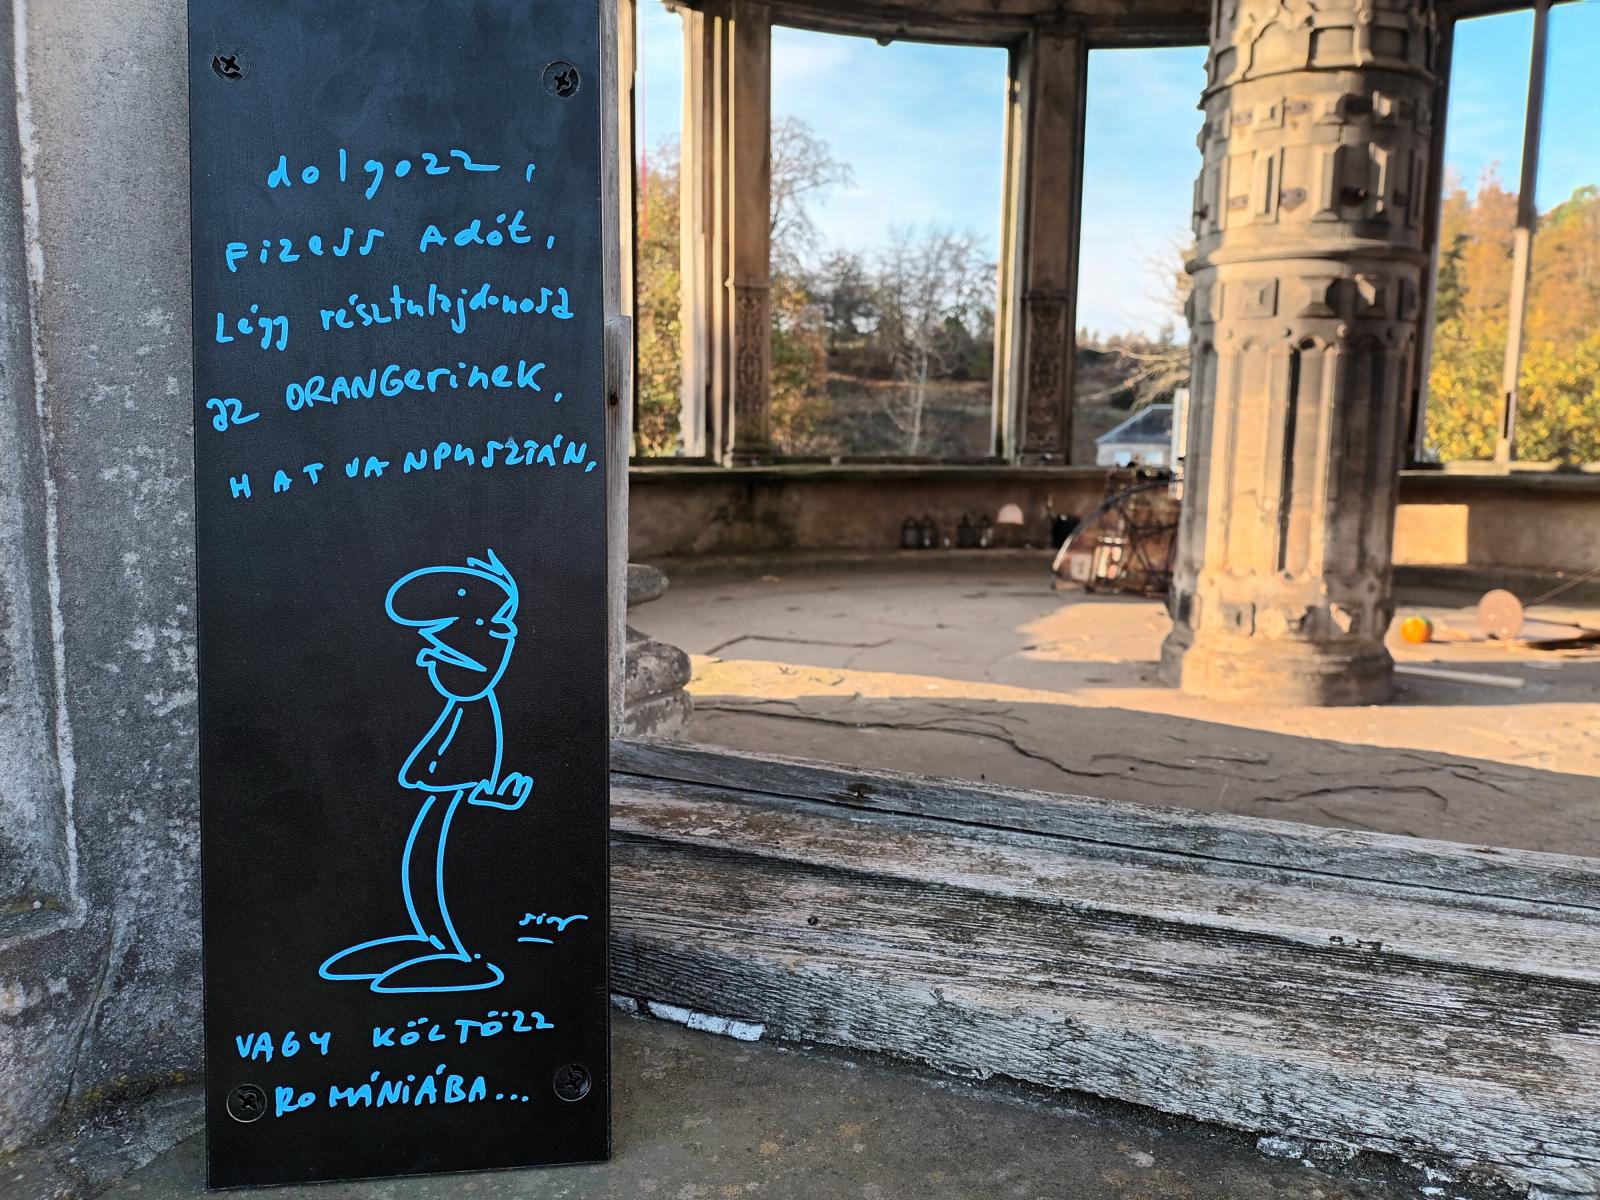 dolgozz,
Fizess Adót,
Légy résztulajdonosa
az ORANGerinek,
HATVANPUSZTÁN,
VAGY KÖLTÖZZ
ROMÁNIÁBA...